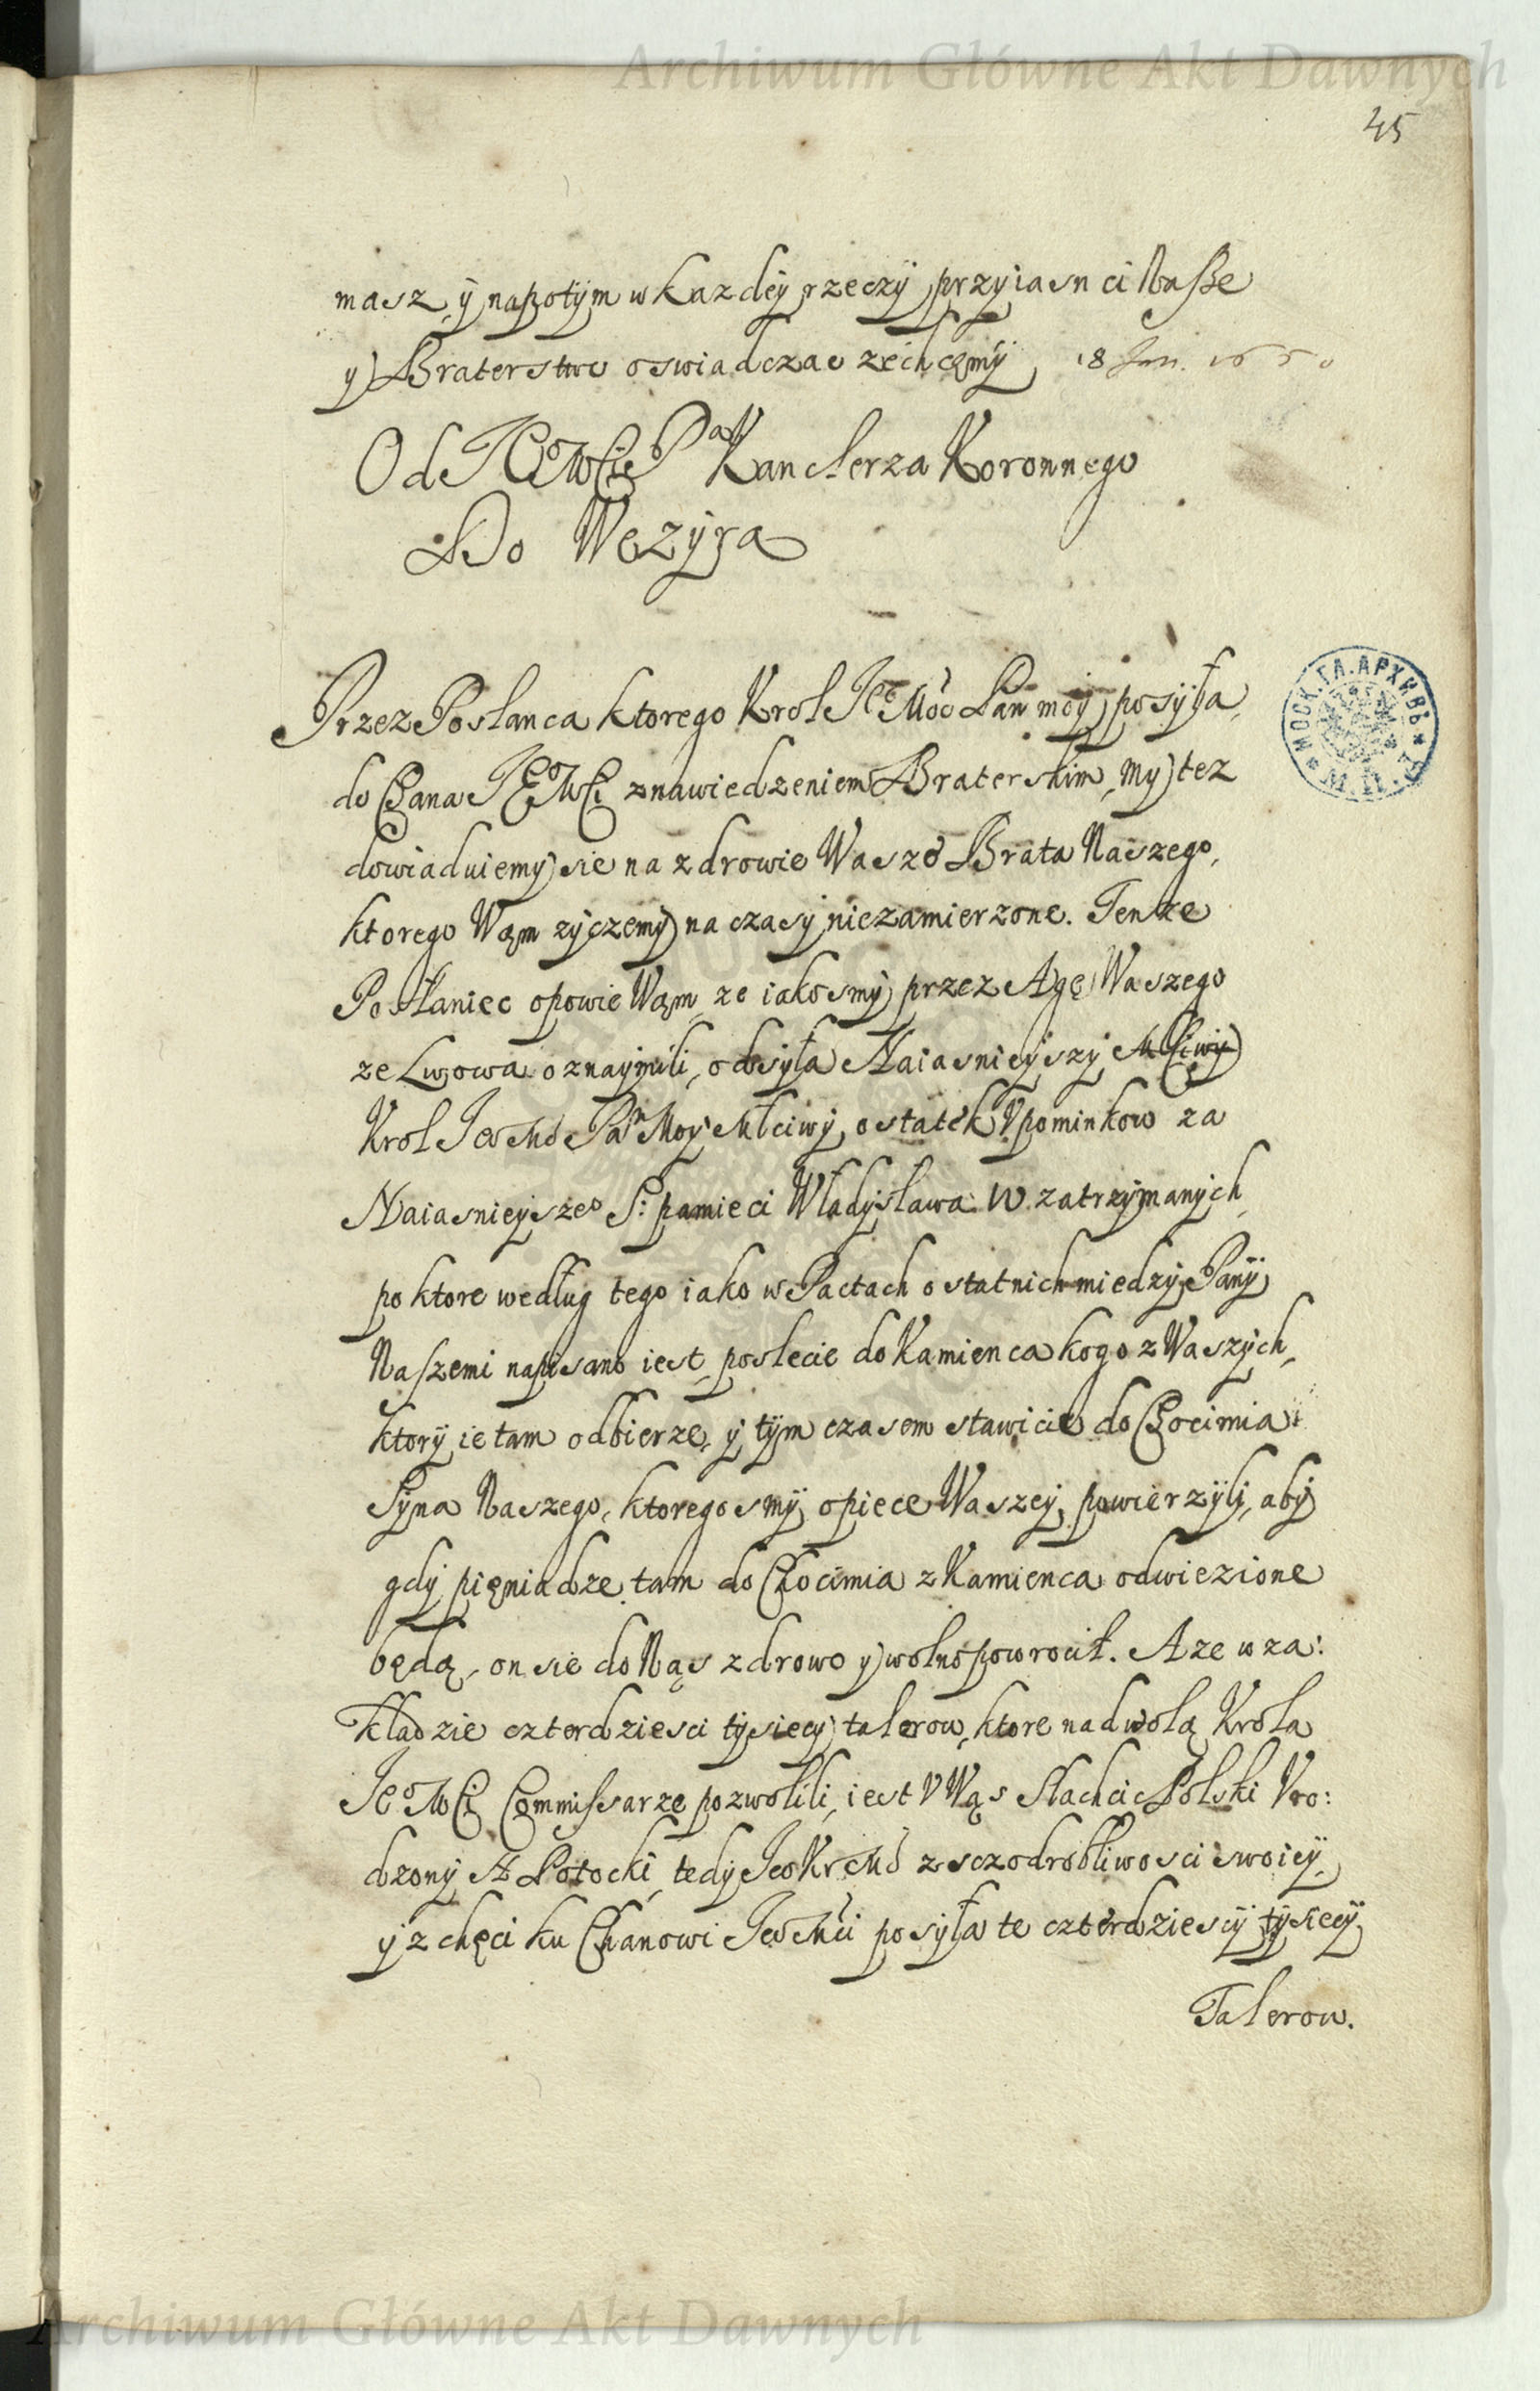 Archiwum Główne Akt Dawnych
45
masz, ÿ napotÿm w kazdeÿ rzeczÿ przyiasn ci Nasße
y Braterstwo oswiadczac zechcęmÿ 18 Jan. 1650
Od JEoMCie Pa Kanclerza Koronnego
Do Wezÿra
Przez Posłanca ktorego Krol JeoMoc Pan moÿ posÿła,
do Chana JEoMCi z nawiedzeniem Braterskim, my tez
dowiaduiemy sie na zdrowie Wasze Brata Naszego,
ktorego Wąm zÿczemy na czasÿ niezamierzone. Tenze
Posłaniec opowie Wąm, ze iakosmÿ przez Agę Waszego
ze Lwowa oznaÿmili, odsÿła Naiasnieÿszÿ MCiwÿ
Krol Jeo Mc Pan Moÿ Msciwÿ, ostatek Vpominkow za
Naiasnieÿszeo S: pamieci Władÿsława IV zatrzÿmanÿch,
po ktore według tego iako w Pactach ostatnich miedzÿ Panÿ
Naszemi napisano iest, poslecie do Kamienca kogo z Waszÿch,
ktorÿ ie tam odbierze, ÿ tÿm czasem stawicie do Chocimia
Sÿna Naszego, ktoregosmÿ opiece Waszeÿ powierzÿlÿ, abÿ
gdÿ pięniadze tam do Chocimia z Kamienca odwiezione
będą, on sie do Nąs zdrowo y wolno powrocił. A ze w za:
kładzie czterdziesci tÿsiecÿ talerow, ktore nad wolą Krola
JeoMCi Commissarze pozwolili, iest V Wąs Slachcic Polski Vro:
dzonÿ A Potocki, tedÿ Jeo Kr Mc z sczodrobliwosci swoieÿ,
ÿ z chęci ku Chanowi Jeo Mci posÿła te czterdziescÿ tÿsiecÿ
Talerow.
МОСК. ГЛ. АРХИВЪ
Archiwum Główne Akt Dawnych